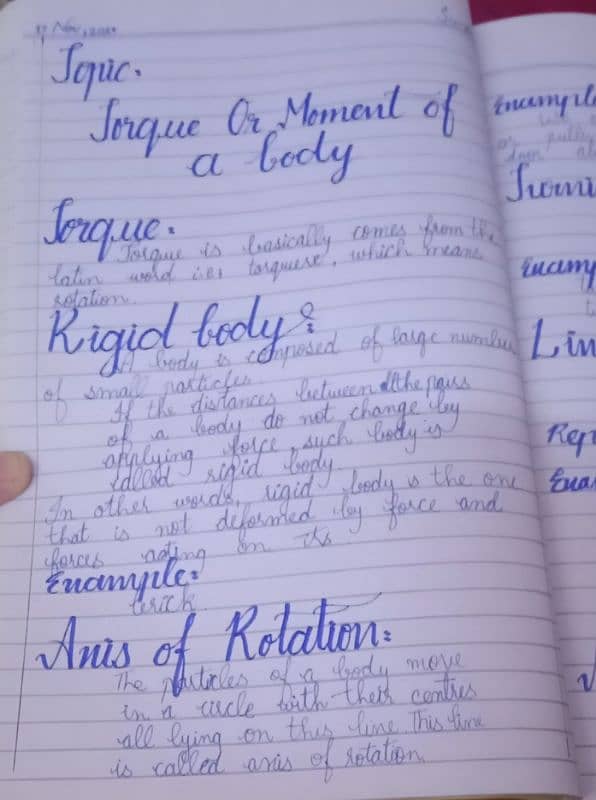 Topic.
Torque Or Moment of
a body
Torque.
Torque is basically comes from the
latin word i.e, torquere, which means
rotation.
Rigid body:
A body is composed of large number
of small particles.
If the distances between all the pairs
of a body do not change by
applying force, such body is
called rigid body.
In other words, rigid body is the one
that is not deformed by force and
forces acting on its
Example:
brick
Axis of Rotation:
The particles of a body move
in a circle with their centres
all lying on this line. This line
is called axis of rotation.
Example
Lin